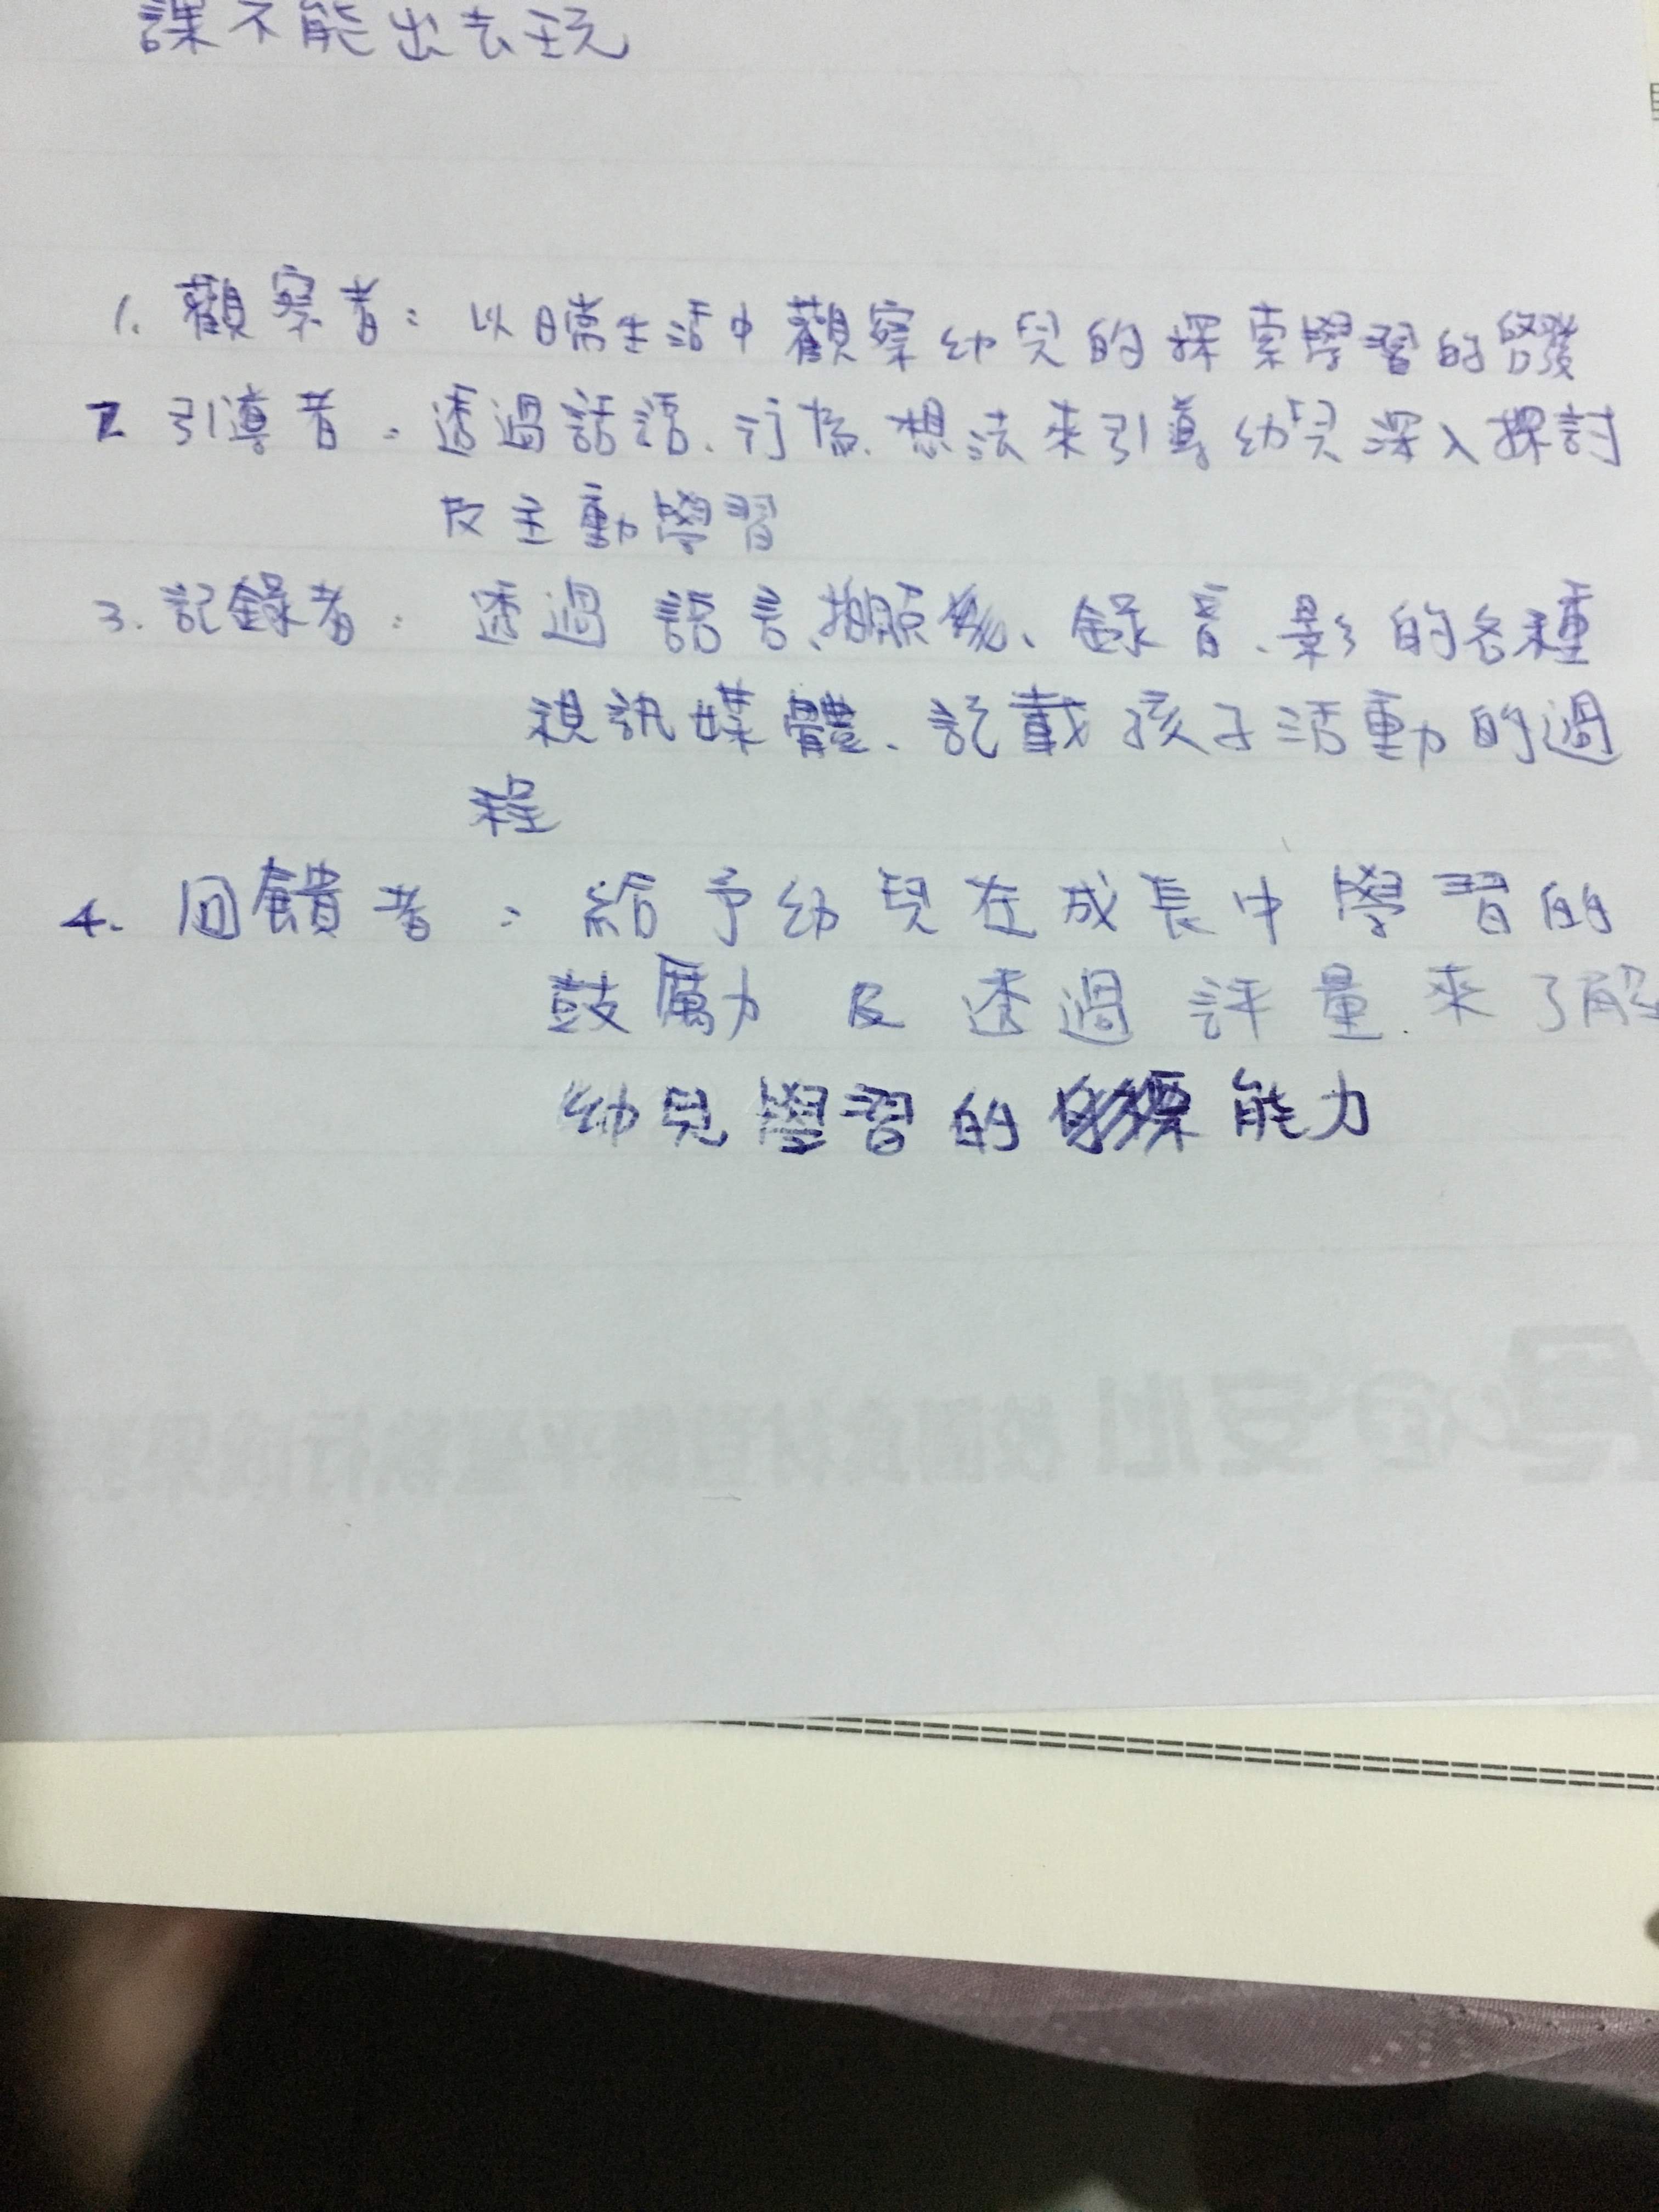 課不能出去玩
1. 觀察者：以日常生活中觀察幼兒的探索學習的啟發
2. 引導者：透過話語、行為、想法來引導幼兒深入探討
及主動學習
3. 記錄者：透過語言、拍照、錄音、影的各種
視訊媒體、記載孩子活動的過
程
4. 回饋者：給予幼兒在成長中學習的
鼓勵及透過評量來了解
幼兒學習的能力